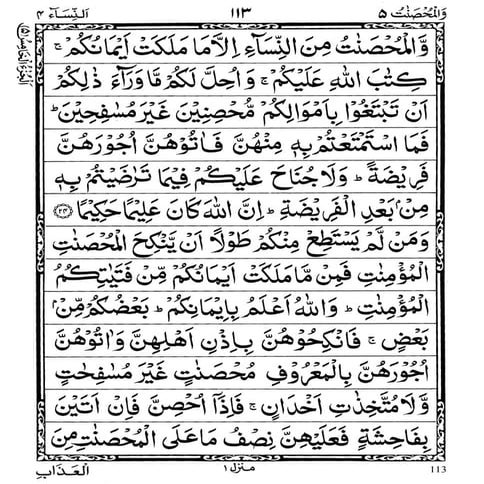 وَالْمُحْصَنٰتُ ۵ ۱۱۳ اَلنِّسَآء ۴
اَلْجُزْءُ الْخَامِسُ (۵)
وَّالْمُحْصَنٰتُ مِنَ النِّسَآءِ اِلَّا مَا مَلَكَتْ اَيْمَانُكُمْ ۚ
كِتٰبَ اللّٰهِ عَلَيْكُمْ ۚ وَاُحِلَّ لَكُمْ مَّا وَرَآءَ ذٰلِكُمْ
اَنْ تَبْتَغُوْا بِاَمْوَالِكُمْ مُّحْصِنِيْنَ غَيْرَ مُسٰفِحِيْنَ ؕ
فَمَا اسْتَمْتَعْتُمْ بِهٖ مِنْهُنَّ فَاٰتُوْهُنَّ اُجُوْرَهُنَّ
فَرِيْضَةً ؕ وَلَا جُنَاحَ عَلَيْكُمْ فِيْمَا تَرٰضَيْتُمْ بِهٖ
مِنْۢ بَعْدِ الْفَرِيْضَةِ ؕ اِنَّ اللّٰهَ كَانَ عَلِيْمًا حَكِيْمًا ﴿۲۴﴾
وَمَنْ لَّمْ يَسْتَطِعْ مِنْكُمْ طَوْلًا اَنْ يَّنْكِحَ الْمُحْصَنٰتِ
الْمُؤْمِنٰتِ فَمِنْ مَّا مَلَكَتْ اَيْمَانُكُمْ مِّنْ فَتَيٰتِكُمُ
الْمُؤْمِنٰتِ ؕ وَاللّٰهُ اَعْلَمُ بِاِيْمَانِكُمْ ؕ بَعْضُكُمْ مِّنْۢ
بَعْضٍ ۚ فَانْكِحُوْهُنَّ بِاِذْنِ اَهْلِهِنَّ وَاٰتُوْهُنَّ
اُجُوْرَهُنَّ بِالْمَعْرُوْفِ مُحْصَنٰتٍ غَيْرَ مُسٰفِحٰتٍ
وَّلَا مُتَّخِذٰتِ اَخْدَانٍ ۚ فَاِذَآ اُحْصِنَّ فَاِنْ اَتَيْنَ
بِفَاحِشَةٍ فَعَلَيْهِنَّ نِصْفُ مَا عَلَى الْمُحْصَنٰتِ مِنَ
113 منزل ۱ الْعَذَابِ